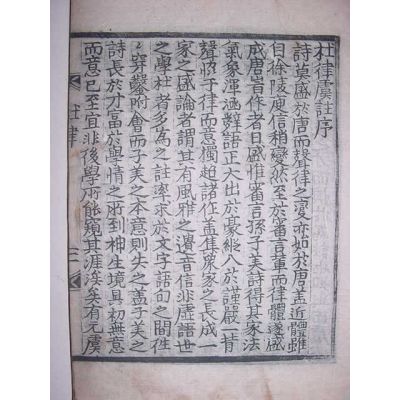 杜律虞註序
詩莫盛於唐而聲律之變亦始於唐盖近體雖
自徐陵庾信稍變然至於審言輩而律體遂盛
成唐音作者日盛惟審言孫子美詩得其家法
氣象渾涵辭語正大出於豪縱入於謹嚴一昔
聲將于律而意獨超諸作盖集衆家之長成一
家之盛論者謂其有風雅之遺音信非虛語世
之學杜者多為之註率求於文字語句之間性
穿鑿附會而子美之本意則失之盖子美之
詩長於才富於學情之所到神生境具初無意
而意已至宜非後學所能窺其涯涘矣有元虞
杜律